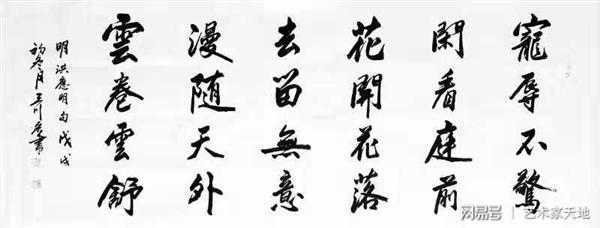 寵辱不驚
閑看庭前
花開花落
去留無意
漫随天外
雲卷雲舒
明洪應明句戊戌
初冬月書
网易号 艺术家天地